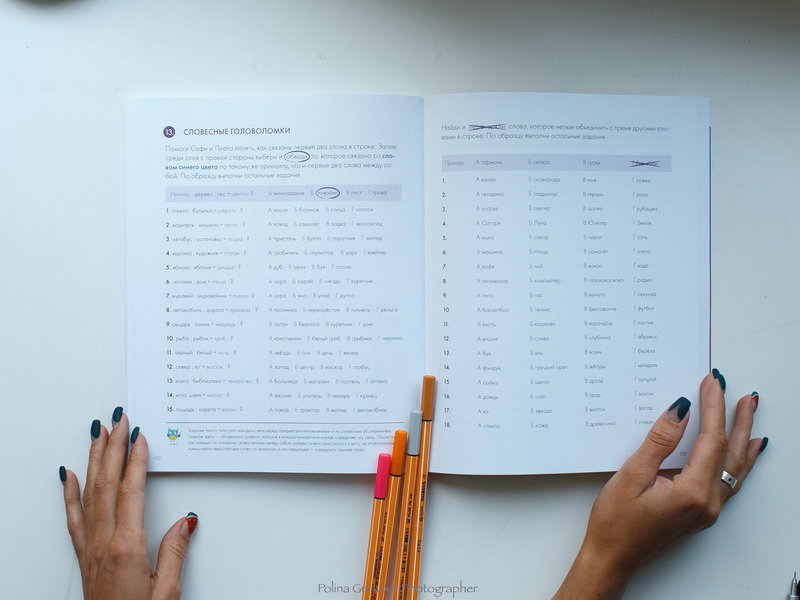 13. СЛОВЕСНЫЕ ГОЛОВОЛОМКИ
Помоги Софи и Плато понять, как связаны первые два слова в строке. Затем
среди слов с правой стороны выбери и обведи то, которое связано со сло-
вом синего цвета по такому же принципу, что и первые два слова между со-
бой. По образцу выполни остальные задания.
Пример: дерево : лес = цветок : ? А виноградник Б лужайка В лист Г трава
1. стекло : бутылка = шерсть : ? А носок Б ботинок В спица Г клопок
2. водитель : машина = пилот : ? А поезд Б самолёт В лодка Г велосипед
3. автобус : остановка = лодка : ? А пристань Б бухта В парусник Г
4. картина : художник = статуя : ? А грабитель Б скульптор В царь Г ювелир
5. яблоко : яблоня = шишка : ? А дуб Б орех В бук Г сосна
6. человек : дом = птица : ? А нора Б сарай В гнездо Г курятник
7. муравей : муравейник = пчела : ? А нора Б яма В улей Г дупло
8. автомобиль : дорога = трамвай : ? А тропинка Б перекрёсток В туннель Г рельсы
9. рыцарь : замок = медведь : ? А загон Б берлога В курятник Г дом
10. рыба : рыбак = гриб : ? А крестьянин Б белый гриб В грибник Г черника
11. чёрный : белый = ночь : ? А звёзды Б сон В день Г вечер
12. север : юг = восток : ? А запад Б центр В восход Г глобус
13. книга : библиотека = лекарство : ? А больница Б магазин В постель Г аптека
14. игла : швея = молот : ? А месяц Б учитель В пекарь Г кузнец
15. лошадь : карета = вагон : ? А поезд Б трактор В мопед Г автомобиль
102
Найди и слово, которое нельзя объединить с тремя другими сло-
вами в строке. По образцу выполни остальные задания.
Пример: А гармонь Б гитара В гусли Г
1. А вилка Б сковорода В нож Г ложка
2. А гвоздика Б гладиолус В герань Г роза
3. А платье Б свитер В шапка Г рубашка
4. А Сатурн Б Луна В Юпитер Г Земля
5. А мука Б сахар В пирог Г соль
6. А машина Б птица В самолёт Г пчела
7. А кофе Б чай В какао Г вода
8. А телевизор Б компьютер В газонокосилка Г радио
9. А лето Б час В минута Г секунда
10. А баскетбол Б теннис В фехтование Г футбол
11. А кисть Б кошелёк В карандаш Г ластик
12. А вишня Б слива В клубника Г абрикос
13. А бук Б ель В ясень Г берёза
14. А фундук Б грецкий орех В жёлудь Г миндаль
15. А сойка Б щегол В дрозд Г попугай
16. А дождь Б снег В град Г зонтик
17. А юг Б звезда В восток Г запад
18. А стекло Б кожа В древесина Г стакан
103
Photographer